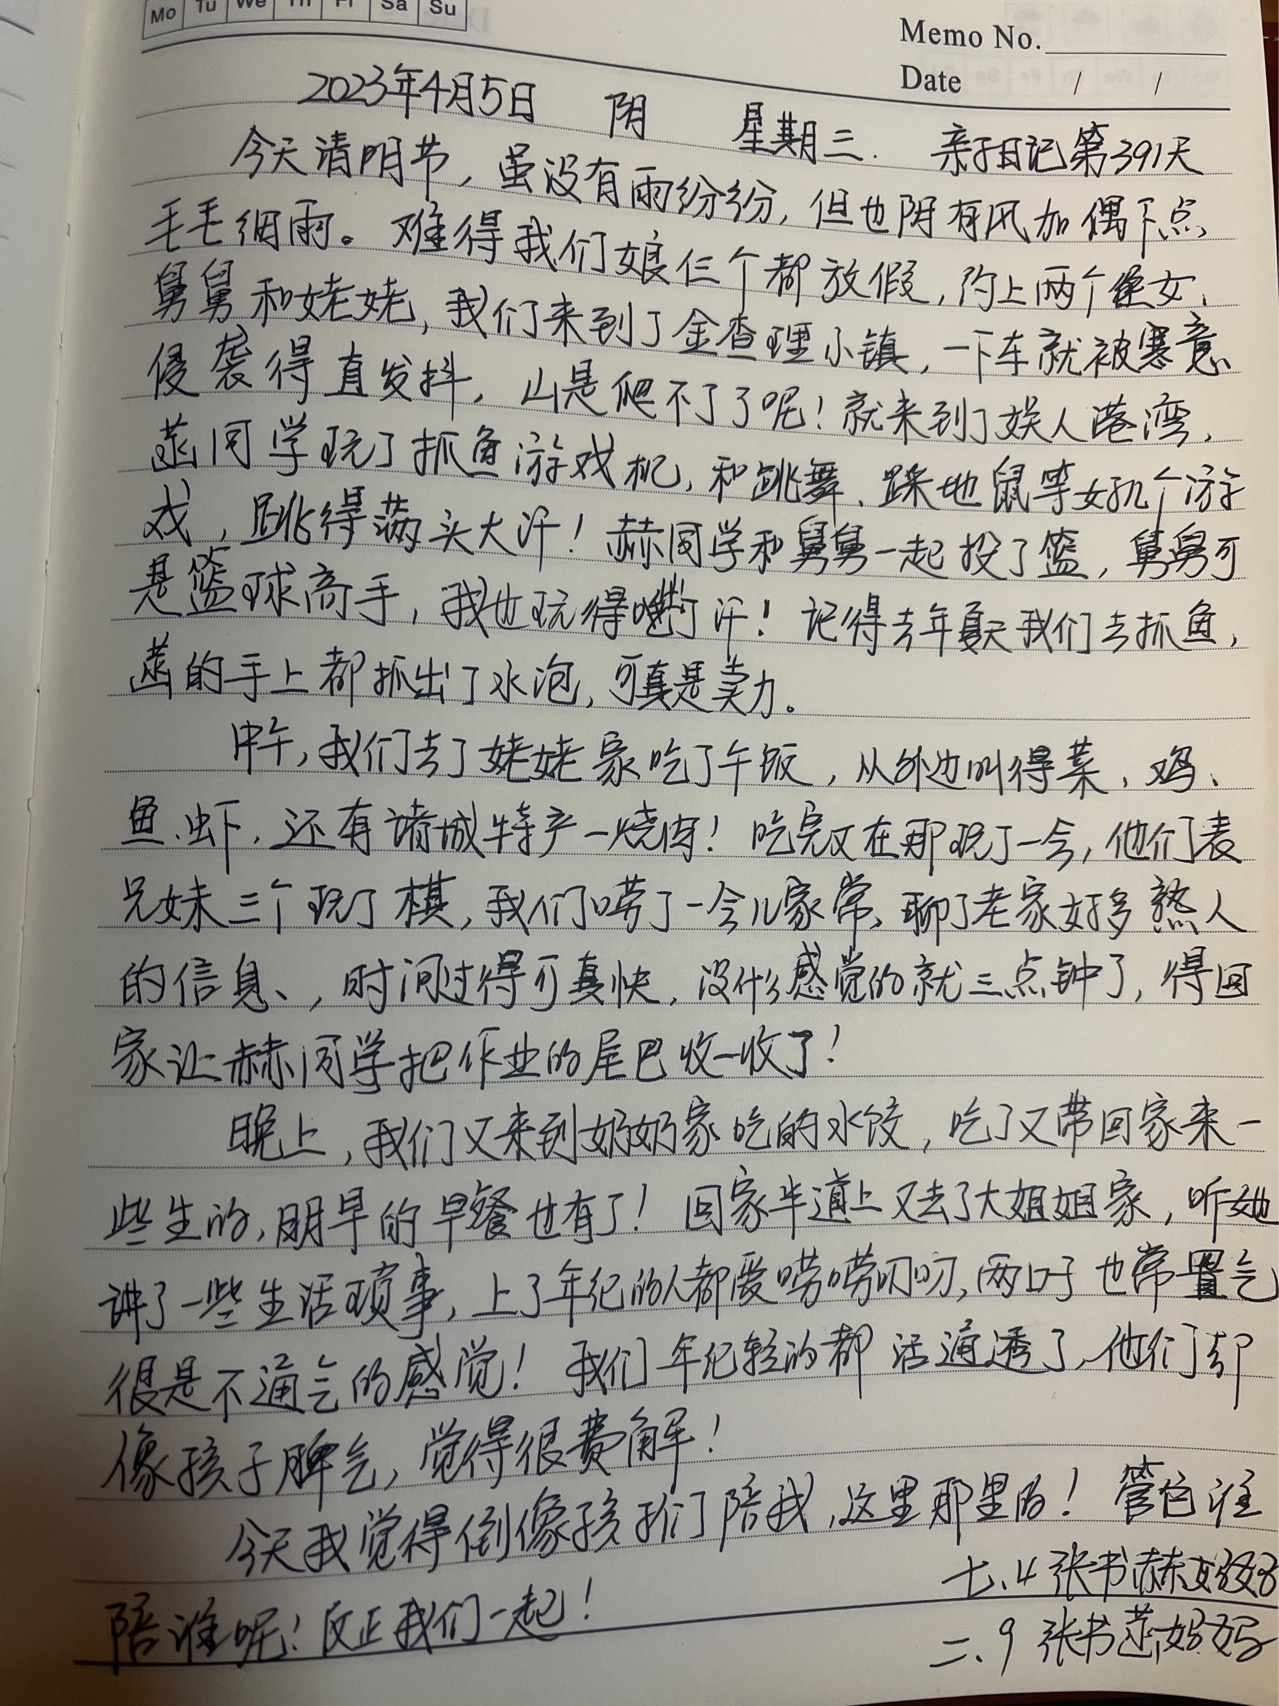 Mo Tu We Th Fr Sa Su
Memo No.
Date / /
2023年4月5日 阴 星期三. 亲子日记第391天
今天清明节，虽没有雨纷纷，但也阴有风加偶下点
毛毛细雨。难得我们娘仨个都放假，约上两个侄女、
舅舅和姥姥，我们来到了金查理小镇，一下车就被寒意
侵袭得直发抖，山是爬不了了呢！就来到了娱人港湾，
菡同学玩了抓鱼游戏机，和跳舞、踩地鼠等好几个游
戏，跳得满头大汗！赫同学和舅舅一起投了篮，舅舅可
是篮球高手，我也玩得汗！记得去年夏天我们去抓鱼，
菡的手上都抓出了水泡，可真是卖力。
中午，我们去了姥姥家吃了午饭，从外边叫得菜，鸡、
鱼、虾，还有诸城特产一烧肉！吃完又在那玩了一会，他们表
兄妹三个玩了棋，我们唠了一会儿家常，聊了老家好多熟人
的信息、，时间过得可真快，没什么感觉的就三点钟了，得回
家让赫同学把作业的尾巴收一收了！
晚上，我们又来到奶奶家吃的水饺，吃了又带回家来一
些生的，明早的早餐也有了！回家半道上又去了大姐姐家，听她
讲了一些生活琐事，上了年纪的人都爱唠唠叨叨，两口子也常置气
很是不通气的感觉！我们年纪轻的都活通透了，他们却
像孩子脾气，觉得很费解！
今天我觉得倒像孩子们陪我，这里那里的！管它谁
陪谁呢！反正我们一起！
七.4 张书赫妈妈
二.9 张书菡妈妈